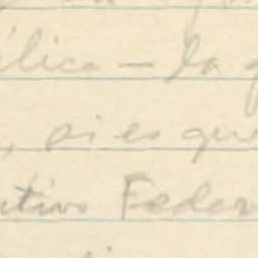 ílica — la
, si es que
utivo Feder